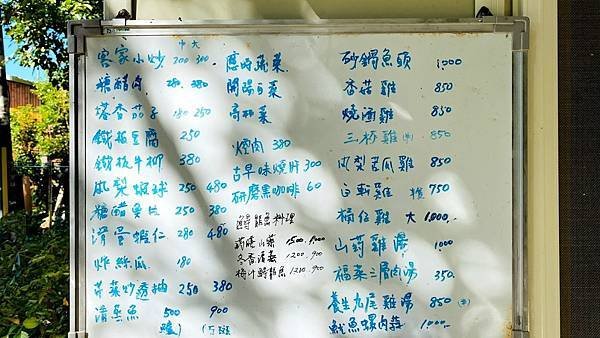 中 大
客家小炒 200 300
糖醋肉 280 380
塔香茄子 180 250
鐵板豆腐 250
鐵板牛柳 380
鳳梨蝦球 250 480
糖醋魚片 250 380
滑蛋蝦仁 280 480
炸絲瓜 180
芹菜炒透抽 250 380
清蒸魚 500 900
應時蔬菜
開陽白菜
高杯菜
焢肉 380
古早味燒肝 300
研磨黑咖啡 60
鱘龍魚料理
1500.1000
冬香清蒸 1200.900
梅汁鱘龍魚 1200.900
砂鍋魚頭 1000
香菇雞 850
燒酒雞 850
三杯雞 (半) 850
鳳梨苦瓜雞 850
白斬雞 750
桶仔雞 大 1000.
山藥雞湯 1000
福菜三層肉湯 350.
養生九尾雞湯 850
魷魚螺肉蒜 1000.